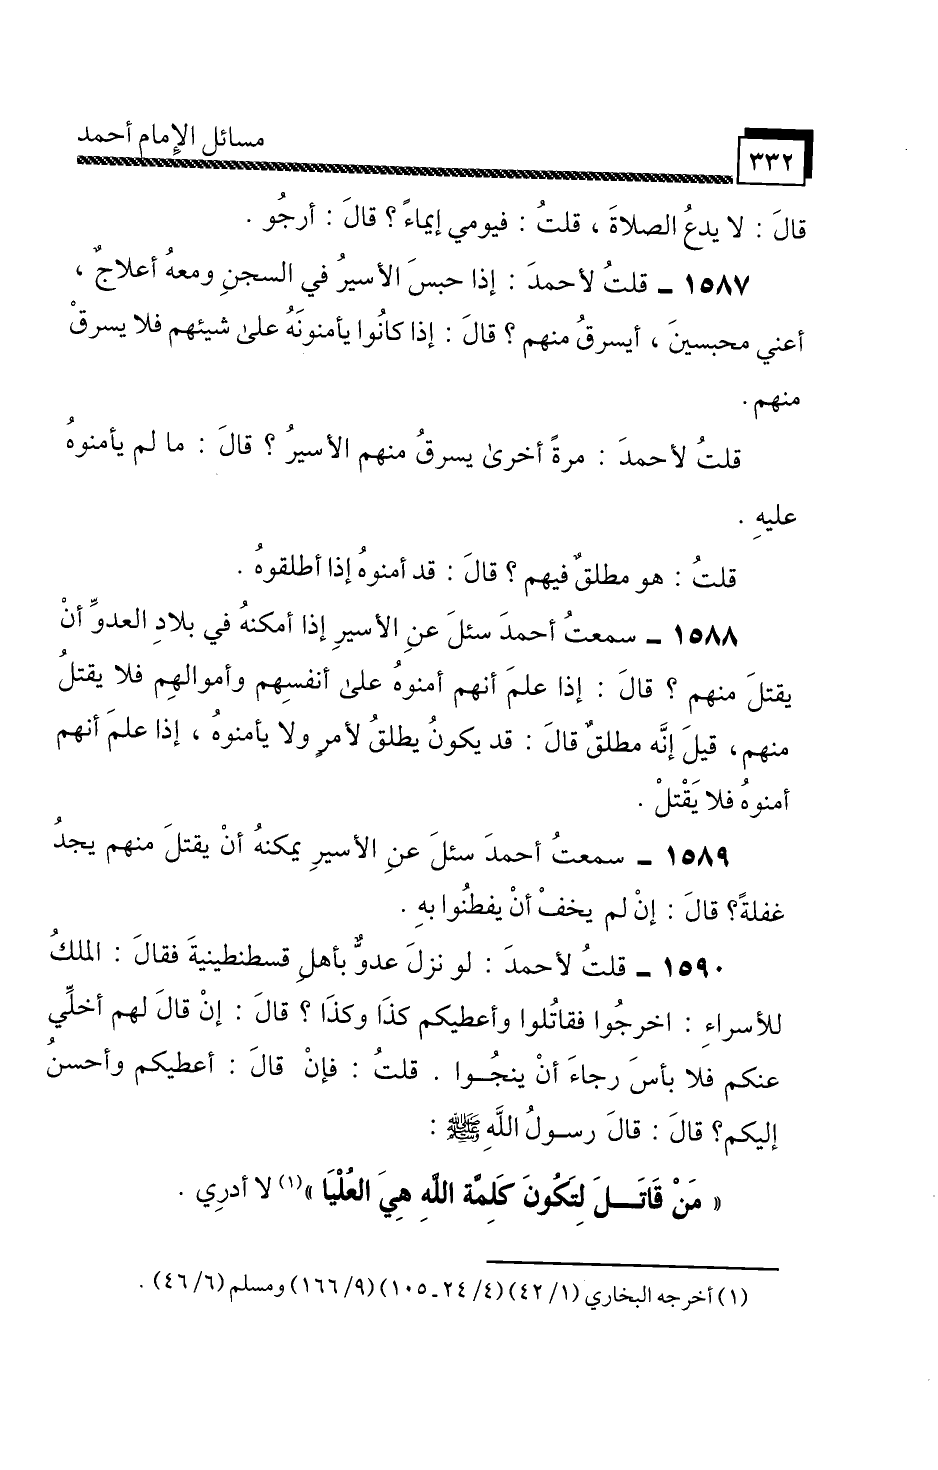 مسائل الإمام أحمد
٣٣٢
قالَ : لا يدعُ الصلاةَ ، قلتُ : فيومي إيماءً ؟ قالَ : أرجُو .
١٥٨٧ ـ قلتُ لأحمدَ : إذا حبسَ الأسيرُ في السجنِ ومعهُ أعلاجٌ ،
أعني محبسينَ ، أيسرقُ منهم ؟ قالَ : إذا كانُوا يأمنونَهُ على شيئهم فلا يسرقْ
منهم .
قلتُ لأحمدَ : مرةً أخرىٰ يسرقُ منهم الأسيرُ ؟ قالَ : ما لم يأمنوهُ
عليهِ .
قلتُ : هو مطلقٌ فيهم ؟ قالَ : قد أمنوهُ إذا أطلقوهُ .
١٥٨٨ ـ سمعتُ أحمدَ سئلَ عنِ الأسيرِ إذا أمكنهُ في بلادِ العدوِّ أنْ
يقتلَ منهم ؟ قالَ : إذا علمَ أنهم أمنوهُ علىٰ أنفسِهم وأموالهِم فلا يقتلُ
منهم، قيلَ إنَّه مطلقٌ قالَ : قد يكونُ يطلقُ لأمرٍ ولا يأمنوهُ ، إذا علمَ أنهم
أمنوهُ فلا يَقْتلْ .
١٥٨٩ ـ سمعتُ أحمدَ سئلَ عنِ الأسيرِ يمكنهُ أنْ يقتلَ منهم يجدُ
غفلةً؟ قالَ : إنْ لم يخفْ أنْ يفطنُوا بهِ .
١٥٩٠ ـ قلتُ لأحمدَ : لو نزلَ عدوٌّ بأهلِ قسطنطينيةَ فقالَ : الملكُ
للأسراءِ : اخرجُوا فقاتُلوا وأعطيكم كذَا وكذَا ؟ قالَ : إنْ قالَ لهم أخلِّي
عنكم فلا بأسَ رجاءَ أنْ ينجُوا . قلتُ : فإنْ قالَ : أعطيكم وأحسنُ
إليكم؟ قالَ : قالَ رسولُ اللَّهِ ﷺ :
« مَنْ قَاتَلَ لِتَكُونَ كَلِمَّة اللَّهِ هِيَ العُلْيَا »(١) لا أدرِي .
(١) أخرجه البخاري (١/ ٤٢) (٤/ ٢٤ ـ ١٠٥) (٩/ ١٦٦) ومسلم (٦/ ٤٦) .